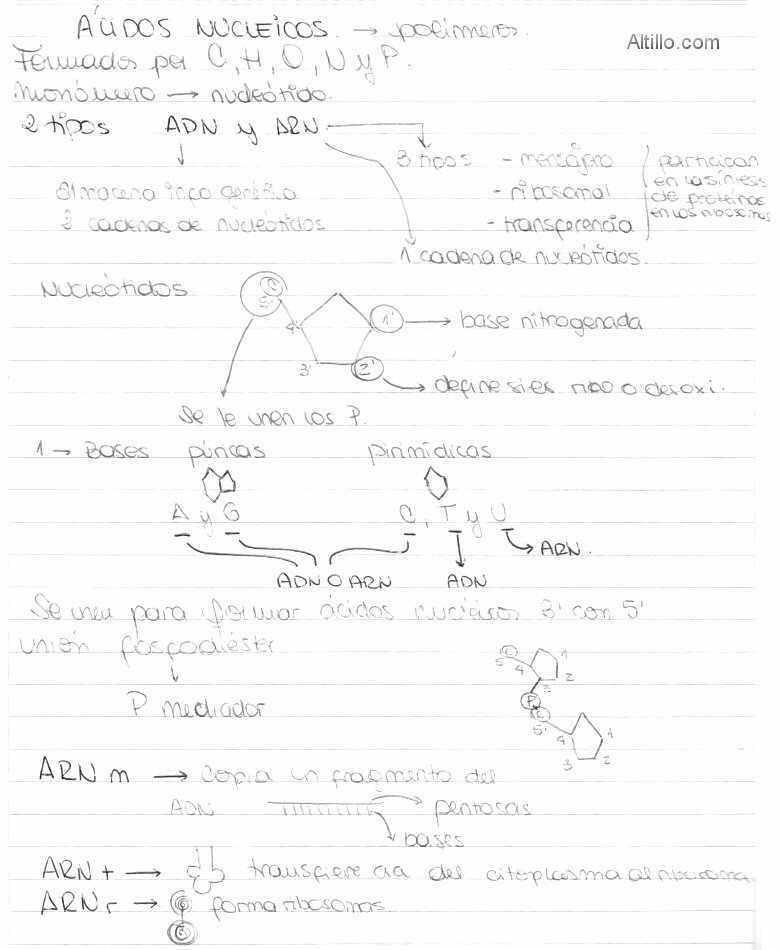 ÁCIDOS NUCLEICOS → polímeros.
Altillo.com
Formados por C, H, O, N y P.
Monómero → nucleótido.
2 tipos ADN y ARN
3 tipos - mensajero
- ribosomal
- transferencia
participan
en la síntesis
de proteínas
en los ribosomas
Almacena info genética
2 cadenas de nucleótidos
1 cadena de nucleótidos.
Nucleótidos
C
5'
4'
3'
1'
2'
→ base nitrogenada
→ define si es ribo o desoxi.
Se le unen los P.
1 → Bases púricas pirimídicas
A y G C, T y U
→ ARN.
ADN O ARN ADN
Se unen para formar ácidos nucleicos 3' con 5'
unión fosfodiéster
P mediador
C
5 4 1
3 2
P
C
5' 4 1
3 2
ARN m → copia un fragmento del
ADN → pentosas
→ bases
ARN t → transfiere aa del citoplasma al ribosoma.
ARN r → forma ribosomas.